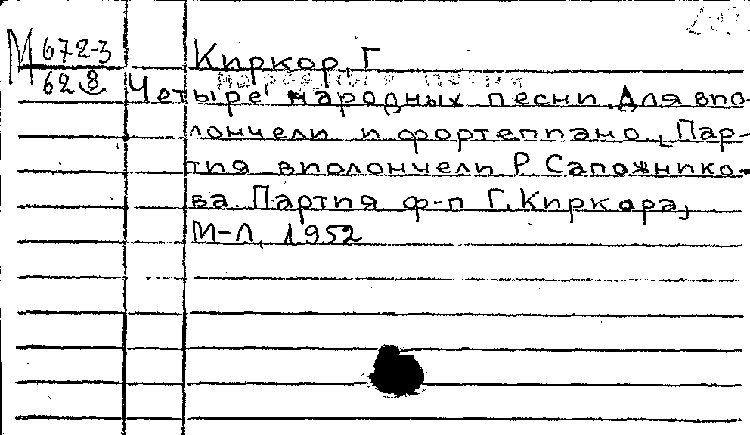 М 672-3
62
Киркор, Г
Четыре народных песни. Для вио-
лончели и фортепиано, Пар-
тия виолончели Р. Сапожнико-
ва Партия ф-п Г. Киркора,
М-Л, 1952